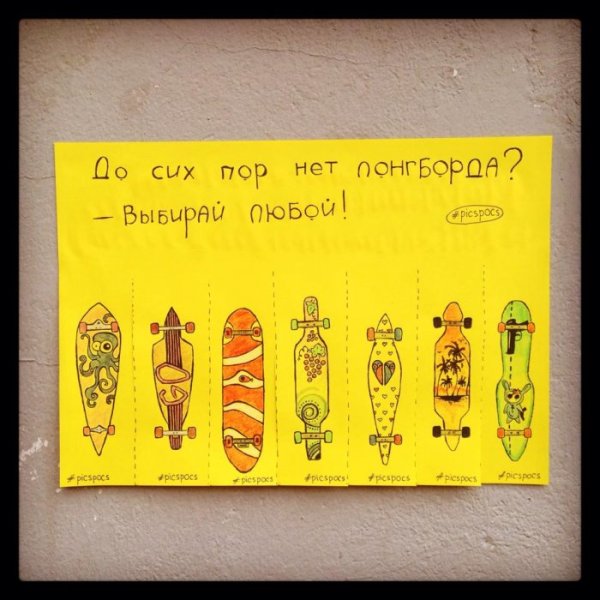 До сих пор нет лонгборда?
– Выбирай любой!
#picspocs
GO
#picspocs #picspocs #picspocs #picspocs #picspocs #picspocs #picspocs